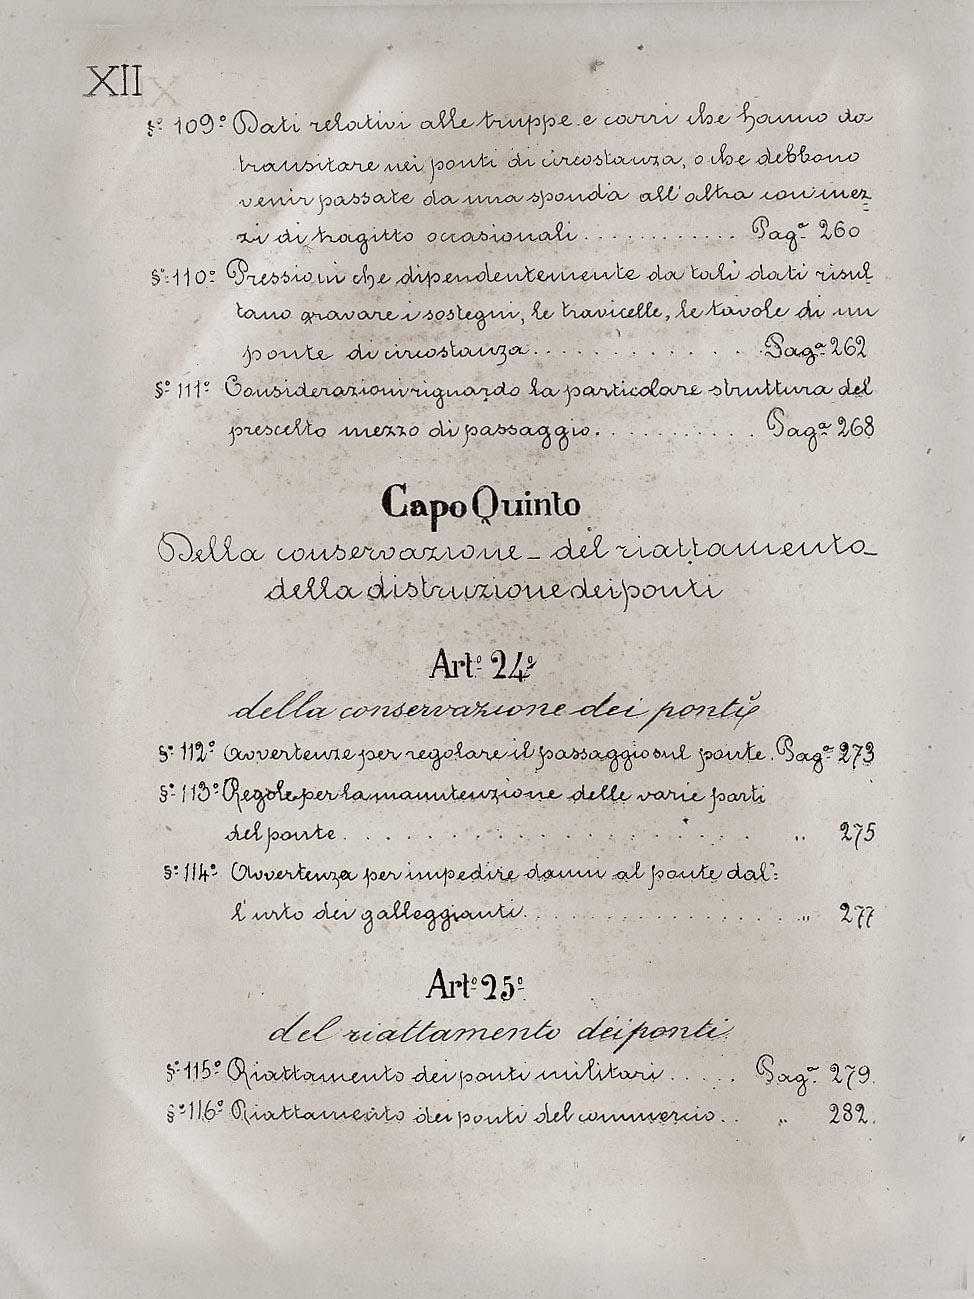 XII
§.º 109.º Dati relativi alle truppe e carri che hanno da
transitare nei ponti di circostanza, o che debbono
venir passate da una sponda all'altra con mez
zi di tragitto occasionali ............ Pag.ª 260
§.º 110.º Pressioni che dipendentemente da tali dati risul
tano gravare i sostegni, le travicelle, le tavole di un
ponte di circostanza .............. Pag.ª 262
§.º 111.º Considerazioni riguardo la particolare struttura del
prescelto mezzo di passaggio ........... Pag.ª 268
Capo Quinto
Della conservazione _ del riattamento _
della distruzione dei ponti
Art.º 24.º
della conservazione dei ponti
§.º 112.º Avvertenze per regolare il passaggio sul ponte. Pag.ª 273
§.º 113.º Regole per la manutenzione delle varie parti
del ponte ................ „ 275
§.º 114.º Avvertenza per impedire danni al ponte dal=
l'urto dei galleggianti ............... „ 277
Art.º 25.º
del riattamento dei ponti
§.º 115.º Riattamento dei ponti militari ...... Pag.ª 279.
§.º 116.º Riattamento dei ponti del commercio .. „ 282.